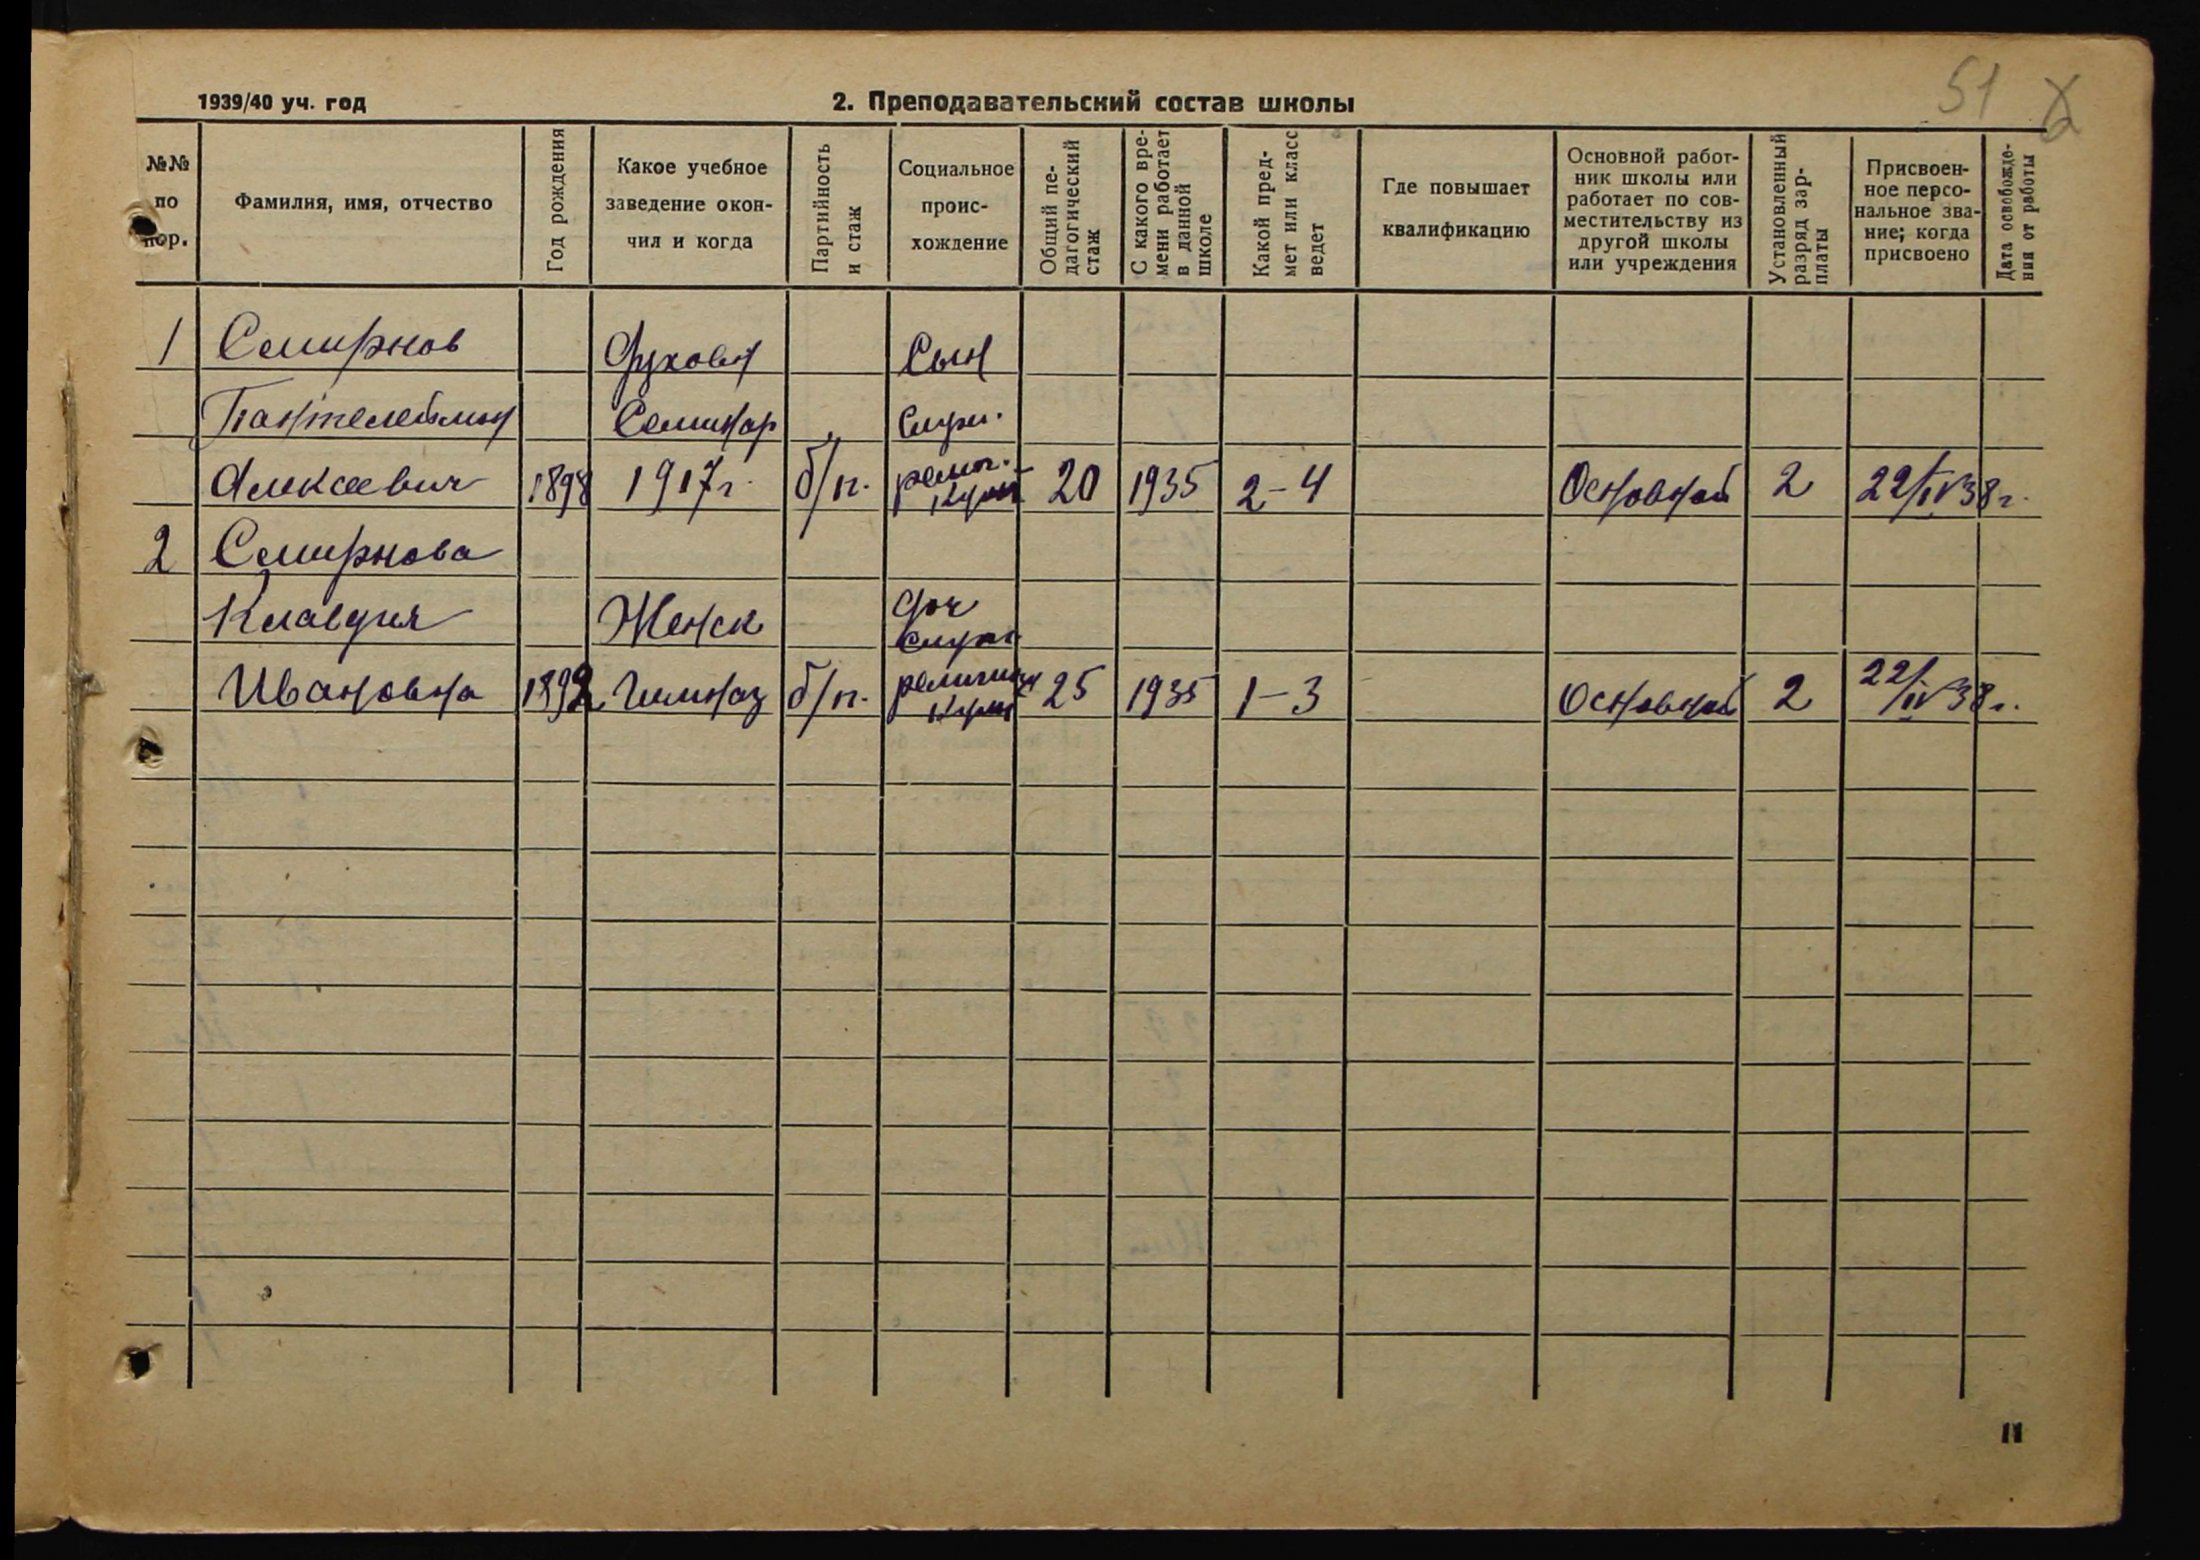 51
1939/40 уч. год
2. Преподавательский состав школы
№№ по пор.
Фамилия, имя, отчество
Год рождения
Какое учебное заведение окончил и когда
Партийность и стаж
Социальное происхождение
Общий педагогический стаж
С какого времени работает в данной школе
Какой предмет или класс ведет
Где повышает квалификацию
Основной работник школы или работает по совместительству из другой школы или учреждения
Установленный разряд зарплаты
Присвоенное персональное звание; когда присвоено
Дата освобождения от работы
1 Смирнов Духовн Сын
Пантелеймон Семинар служ.
Алексеевич 1898 1917г. б/п. религ. культ 20 1935 2-4 Основной 2 22/IV 38г.
2 Смирнова
Клавдия Женск доч служ.
Ивановна 1892 Гимназ б/п. религиозн культ 25 1935 1-3 Основной 2 22/IV 38г.
11